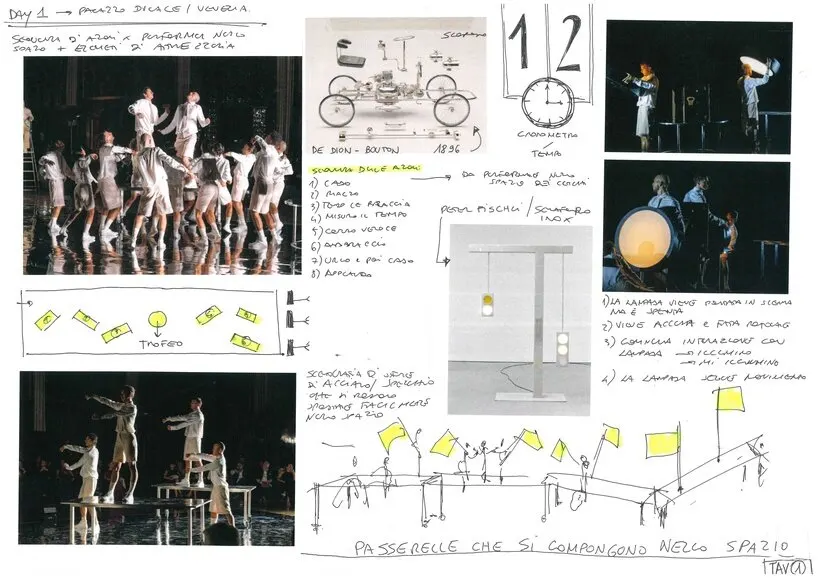 DAY 1 → PALAZZO DUCALE / VENEZIA.
SEQUENZA DI AZIONI X PERFORMER NELLO
SPAZIO + ELEMENTI DI ATTREZZERIA
DE DION - BOUTON 1896
12
CRONOMETRO
/ TEMPO
SEQUENZA DELLE AZIONI
1) CADO
2) MARZO
3) TENDO LE BRACCIA
4) MISURO IL TEMPO
5) CORRO VELOCE
6) ABBRACCIO
7) URLO E POI CADO
8) APPLAUDO
→ DA PERFORMARE NELLO
SPAZIO DEI CERCHI
PETER FISCHLI / SEMAFORO
INOX
TROFEO
SCENOGRAFIA DI
DI ACCIAIO / SPECCHIO
CHE SI POSSONO
SPOSTARE FACILMENTE
NELLO SPAZIO
1) LA LAMPADA VIENE PORTATA IN SCENA
MA È SPENTA
2) VIENE ACCESA E FATTA ROTOLARE
3) COMINCIA INTERAZIONE CON
LAMPADA → ILLUMINO
→ MI ILLUMINO
4) LA LAMPADA SEGUE MOVIMENTO
PASSERELLE CHE SI COMPONGONO NELLO SPAZIO
TAV(1)